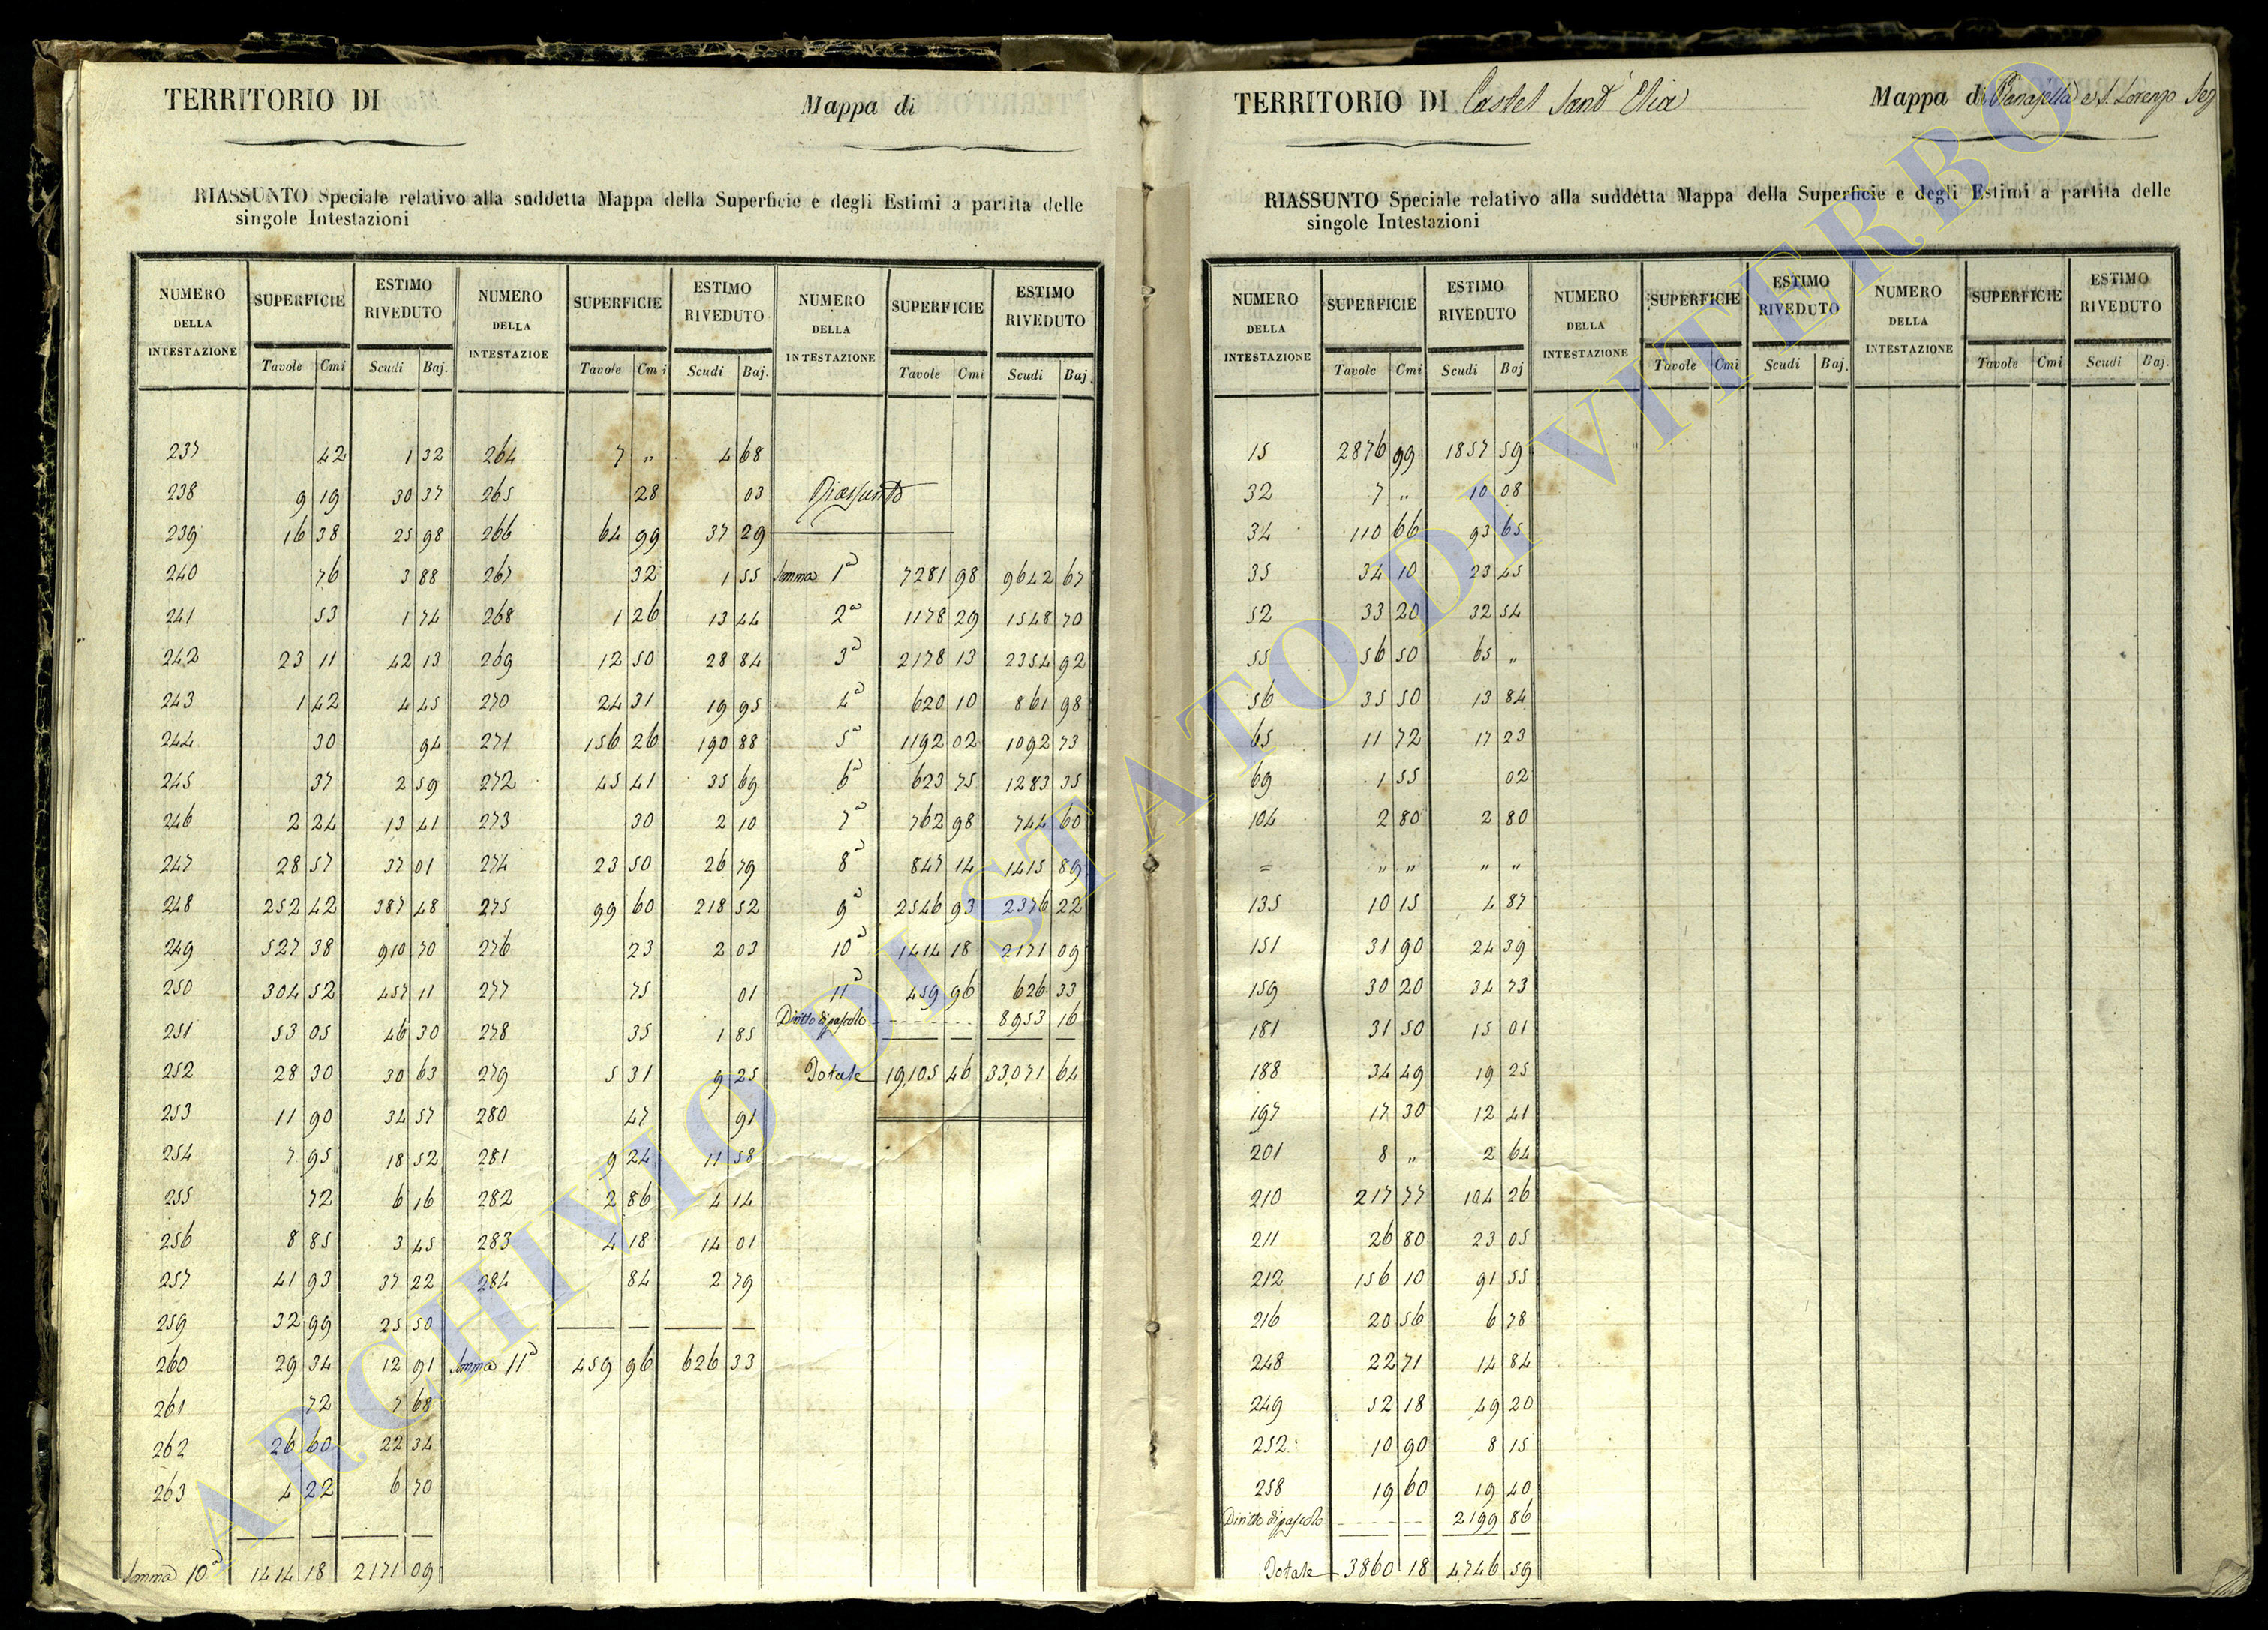 TERRITORIO DI
Mappa di
RIASSUNTO Speciale relativo alla suddetta Mappa della Superficie e degli Estimi a partita delle
singole Intestazioni
NUMERO DELLA INTESTAZIONE SUPERFICIE ESTIMO RIVEDUTO NUMERO DELLA INTESTAZIOE SUPERFICIE ESTIMO RIVEDUTO NUMERO DELLA INTESTAZIONE SUPERFICIE ESTIMO RIVEDUTO
Tavole Cmi Scudi Baj. Tavole Cmi Scudi Baj. Tavole Cmi Scudi Baj.
237 42 1 32 264 7 " 4 68
238 9 19 30 37 265 28 03 Riassunto
239 16 38 25 98 266 64 99 37 29
240 76 3 88 267 32 1 55 Somma 1a 7281 98 9642 67
241 53 1 74 268 1 26 13 44 2a 1178 29 1548 70
242 23 11 42 13 269 12 50 28 84 3a 2178 13 2354 92
243 1 42 4 45 270 24 31 19 95 4a 620 10 861 98
244 30 94 271 156 26 190 88 5a 1192 02 1092 73
245 37 2 59 272 45 41 35 69 6a 623 75 1283 35
246 2 24 13 41 273 30 2 10 7a 762 98 744 60
247 28 57 37 01 274 23 50 26 79 8a 847 14 1415 89
248 252 42 387 48 275 99 60 218 52 9a 2546 93 2376 22
249 527 38 910 70 276 23 2 03 10a 1414 18 2171 09
250 304 52 457 11 277 75 01 11a 459 96 626 33
Diritto di pascolo 8953 16
251 53 05 46 30 278 35 1 85
252 28 30 30 63 279 5 31 9 25 Totale 19,105 46 33,071 64
253 11 90 34 57 280 47 91
254 7 95 18 52 281 9 24 11 58
255 72 6 16 282 2 86 4 14
256 8 85 3 45 283 4 18 14 01
257 41 93 37 22 284 84 2 79
259 32 99 25 50
260 29 34 12 91 Somma 11a 459 96 626 33
261 72 7 68
262 26 60 22 34
263 4 22 6 70
Somma 10a 1414 18 2171 09
TERRITORIO DI Castel Sant' Elia
Mappa di Pianajella e S. Lorenzo Seg
RIASSUNTO Speciale relativo alla suddetta Mappa della Superficie e degli Estimi a partita delle
singole Intestazioni
NUMERO DELLA INTESTAZIONE SUPERFICIE ESTIMO RIVEDUTO NUMERO DELLA INTESTAZIONE SUPERFICIE ESTIMO RIVEDUTO NUMERO DELLA INTESTAZIONE SUPERFICIE ESTIMO RIVEDUTO
Tavole Cmi Scudi Baj Tavole Cmi Scudi Baj. Tavole Cmi Scudi Baj.
15 2876 99 1857 59
32 7 " 10 08
34 110 66 93 65
35 34 10 23 45
52 33 20 32 54
55 56 50 65 "
56 35 50 13 84
65 11 72 17 23
69 1 55 02
104 2 80 2 80
= " " " "
135 10 15 4 87
151 31 90 24 39
159 30 20 34 73
181 31 50 15 01
188 34 49 19 25
197 17 30 12 41
201 8 " 2 64
210 217 77 104 26
211 26 80 23 05
212 156 10 91 55
216 20 56 6 78
248 22 71 14 84
249 52 18 49 20
252 10 90 8 15
258 19 60 19 40
Diritto di pascolo 2199 86
Totale 3860 18 4746 59
ARCHIVIO DI STATO DI VITERBO